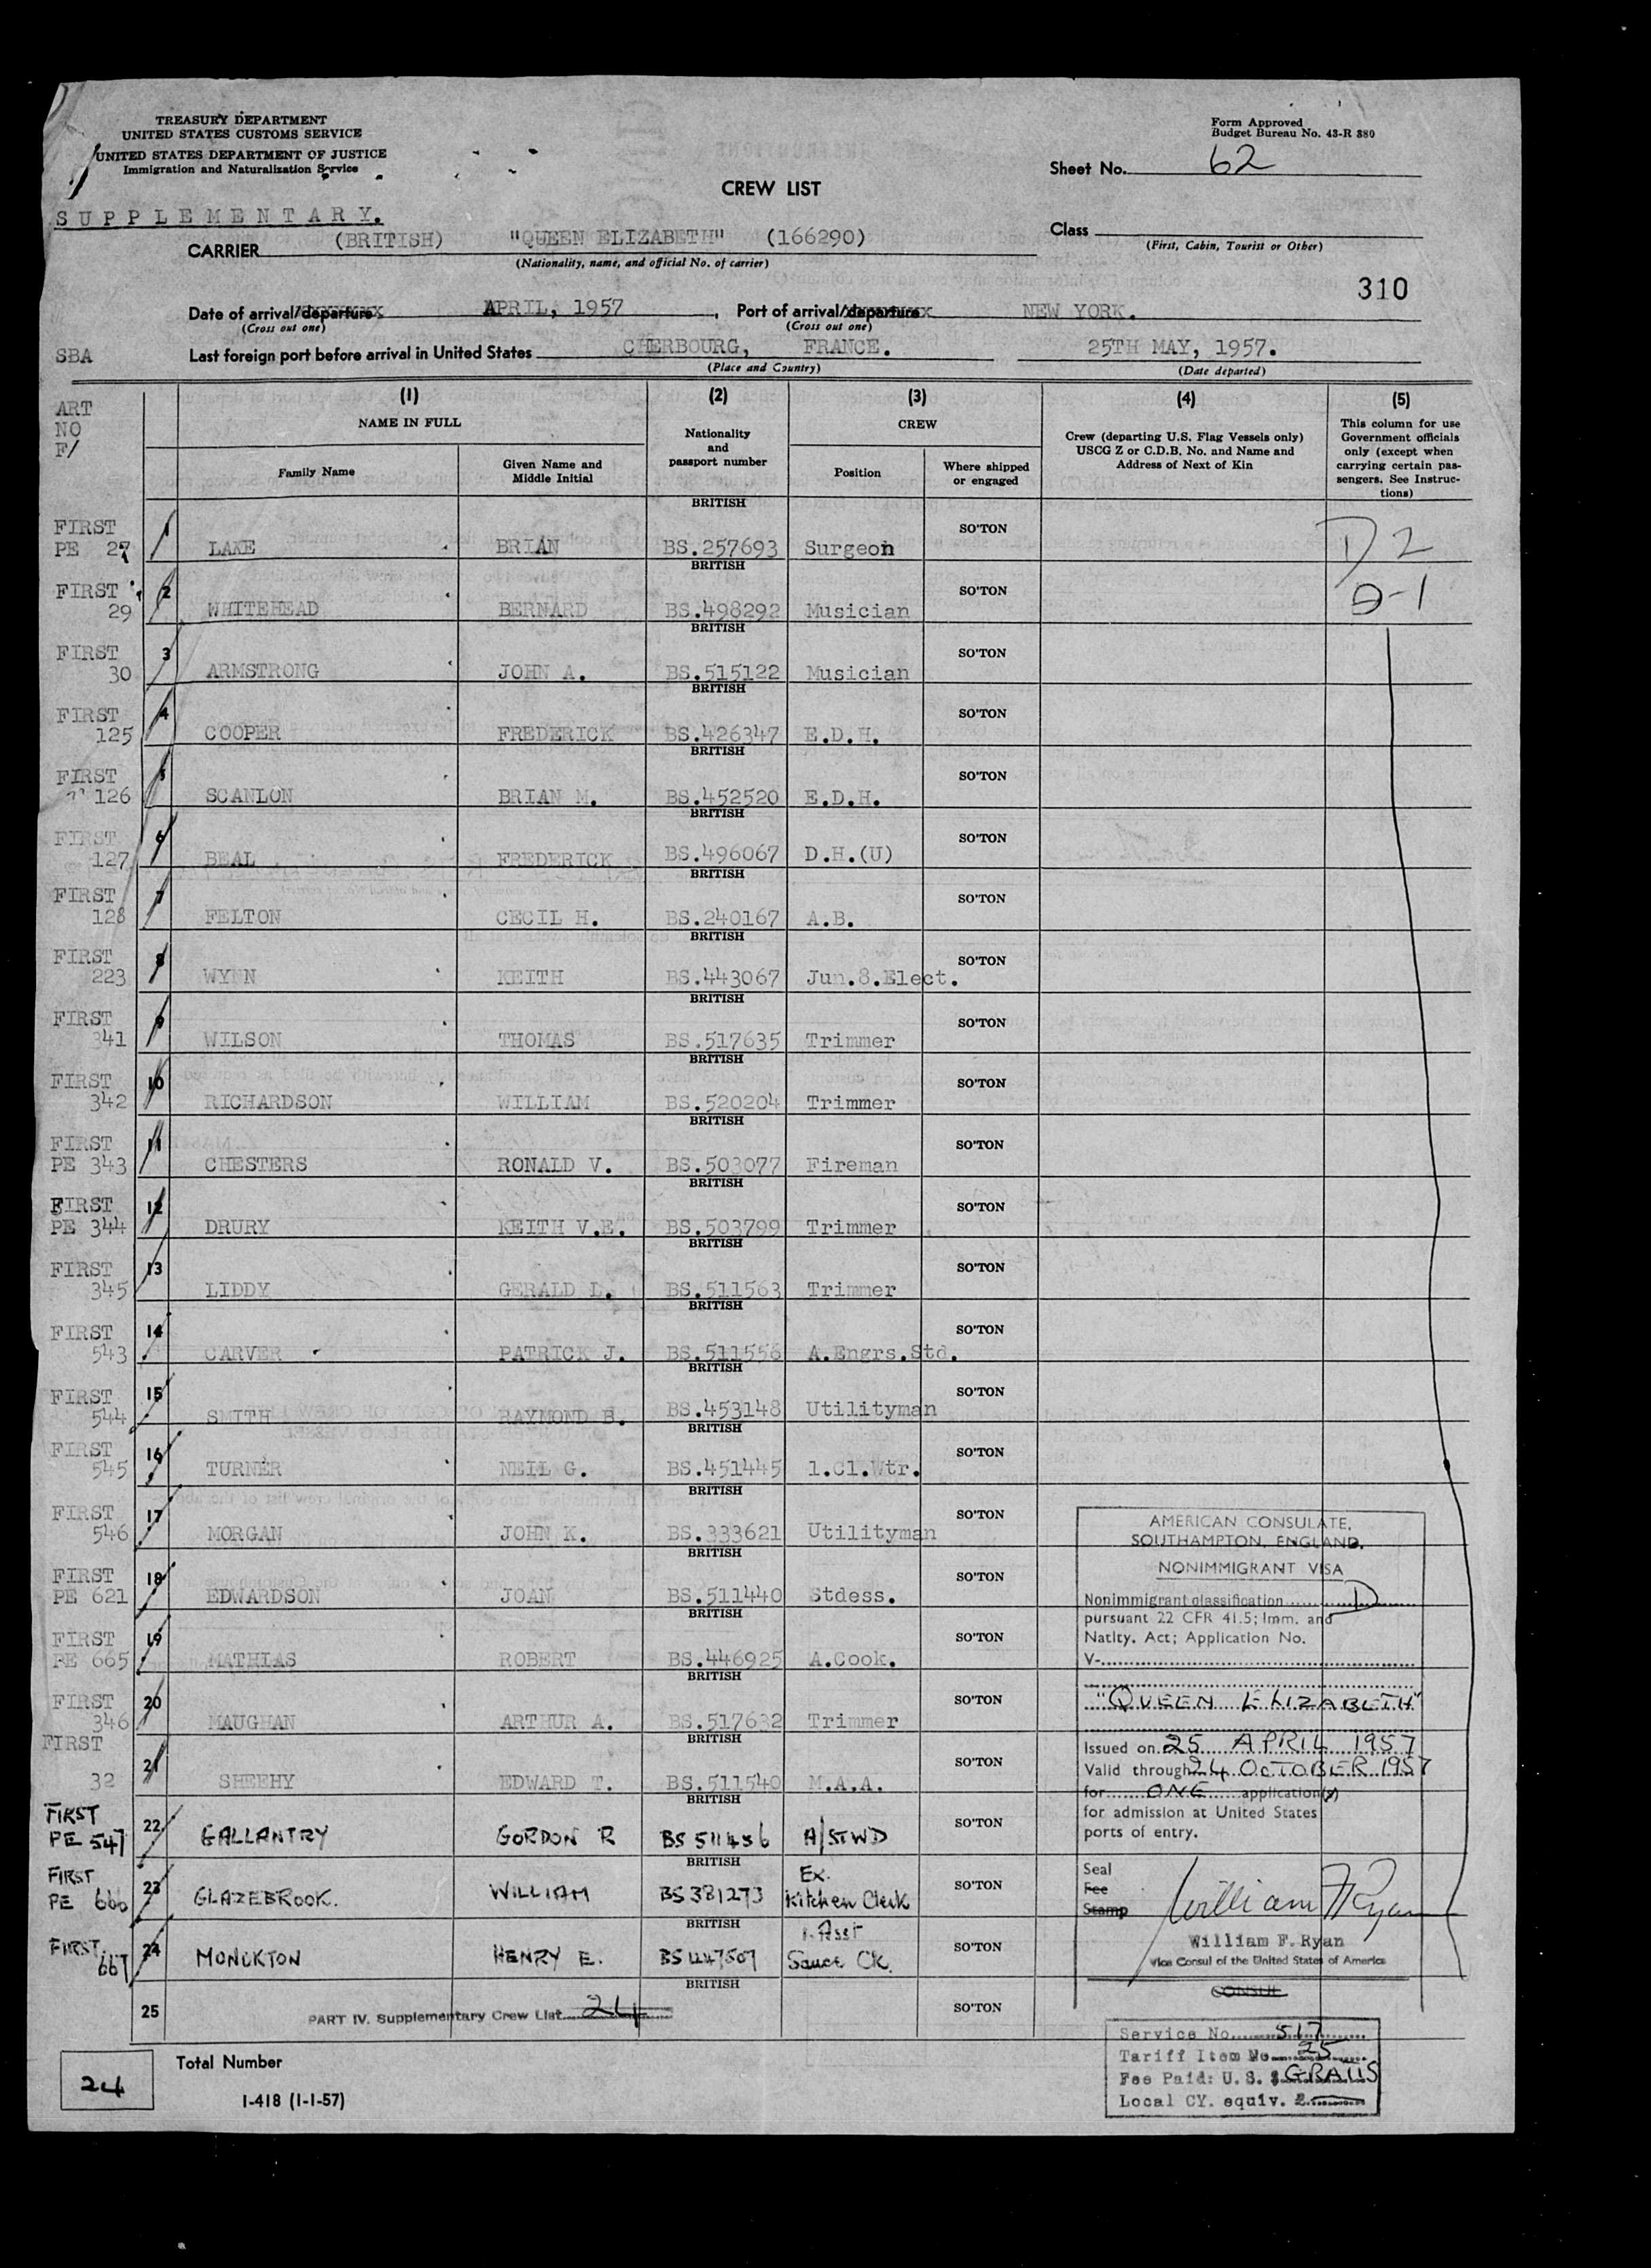 TREASURY DEPARTMENT
UNITED STATES CUSTOMS SERVICE
UNITED STATES DEPARTMENT OF JUSTICE
Immigration and Naturalization Service
Form Approved
Budget Bureau No. 43-R 380
Sheet No. 62
CREW LIST
SUPPLEMENTARY.
CARRIER (BRITISH) "QUEEN ELIZABETH" (166290)
(Nationality, name, and official No. of carrier)
Class
(First, Cabin, Tourist or Other)
310
Date of arrival/departure APRIL, 1957, Port of arrival/departure NEW YORK.
(Cross out one) (Cross out one)
SBA Last foreign port before arrival in United States CHERBOURG, FRANCE. 25TH MAY, 1957.
(Place and Country) (Date departed)
ART
NO
F/
(1) (2) (3) (4) (5)
NAME IN FULL
Family Name
Given Name and
Middle Initial
Nationality
and
passport number
CREW
Position
Where shipped
or engaged
Crew (departing U.S. Flag Vessels only)
USCG Z or C.D.B. No. and Name and
Address of Next of Kin
This column for use
Government officials
only (except when
carrying certain pas-
sengers. See Instruc-
tions)
BRITISH
FIRST 1 SO'TON D 2
PE 27 LAKE BRIAN BS.257693 Surgeon
BRITISH
FIRST 2 SO'TON D-1
29 WHITEHEAD BERNARD BS.498292 Musician
BRITISH
FIRST 3 SO'TON
30 ARMSTRONG JOHN A. BS.515122 Musician
BRITISH
FIRST 4 SO'TON
125 COOPER FREDERICK BS.426347 E.D.H.
BRITISH
FIRST 5 SO'TON
126 SCANLON BRIAN M. BS.452520 E.D.H.
BRITISH
FIRST 6 SO'TON
127 BEAL FREDERICK BS.496067 D.H.(U)
BRITISH
FIRST 7 SO'TON
128 FELTON CECIL H. BS.240167 A.B.
BRITISH
FIRST 8 SO'TON
223 WYNN KEITH BS.443067 Jun.8.Elect.
BRITISH
FIRST 9 SO'TON
341 WILSON THOMAS BS.517635 Trimmer
BRITISH
FIRST 10 SO'TON
342 RICHARDSON WILLIAM BS.520204 Trimmer
BRITISH
FIRST 11 SO'TON
PE 343 CHESTERS RONALD V. BS.503077 Fireman
BRITISH
FIRST 12 SO'TON
PE 344 DRURY KEITH V.E. BS.503799 Trimmer
BRITISH
FIRST 13 SO'TON
345 LIDDY GERALD L. BS.511563 Trimmer
BRITISH
FIRST 14 SO'TON
543 CARVER PATRICK J. BS.511556 A.Engrs.Std.
BRITISH
FIRST 15 SO'TON
544 SMITH RAYMOND B. BS.453148 Utilityman
BRITISH
FIRST 16 SO'TON
545 TURNER NEIL G. BS.451445 1.Cl.Wtr.
BRITISH
FIRST 17 SO'TON
546 MORGAN JOHN K. BS.333621 Utilityman
BRITISH
FIRST 18 SO'TON
PE 621 EDWARDSON JOAN BS.511440 Stdess.
BRITISH
FIRST 19 SO'TON
PE 665 MATHIAS ROBERT BS.446925 A.Cook.
BRITISH
FIRST 20 SO'TON
346 MAUGHAN ARTHUR A. BS.517632 Trimmer
BRITISH
FIRST 21 SO'TON
32 SHEEHY EDWARD T. BS.511540 M.A.A.
BRITISH
FIRST 22 SO'TON
PE 547 GALLANTRY GORDON R BS 511436 A/STWD
BRITISH
FIRST 23 Ex. SO'TON
PE 666 GLAZEBROOK. WILLIAM BS 381273 Kitchen Clerk
BRITISH
FIRST 24 1. Asst SO'TON
667 MONCKTON HENRY E. BS 447507 Sauce Ck.
BRITISH
25 PART IV. Supplementary Crew List 24 SO'TON
AMERICAN CONSULATE,
SOUTHAMPTON, ENGLAND.
NONIMMIGRANT VISA
Nonimmigrant classification D
pursuant 22 CFR 41.5; Imm. and
Natlty. Act; Application No.
V-
"QUEEN ELIZABETH"
Issued on 25 APRIL 1957
Valid through 24 OCTOBER 1957
for ONE application(s)
for admission at United States
ports of entry.
Seal
Fee
Stamp
William F Ryan
William F. Ryan
Vice Consul of the United States of America
CONSUL
Service No. 517
Tariff Item No. 25
Fee Paid: U.S. $ GRATIS
Local CY. equiv. £
24 Total Number
I-418 (1-1-57)